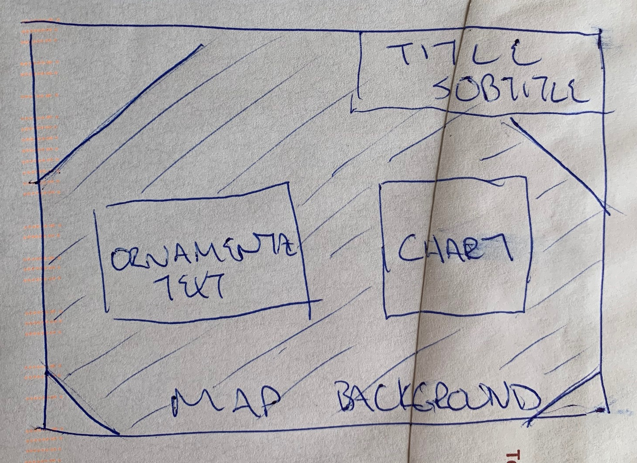 TITLE
SOBTITLE
ORNAMENTAL
TEXT
CHART
MAP BACKGROUND
To